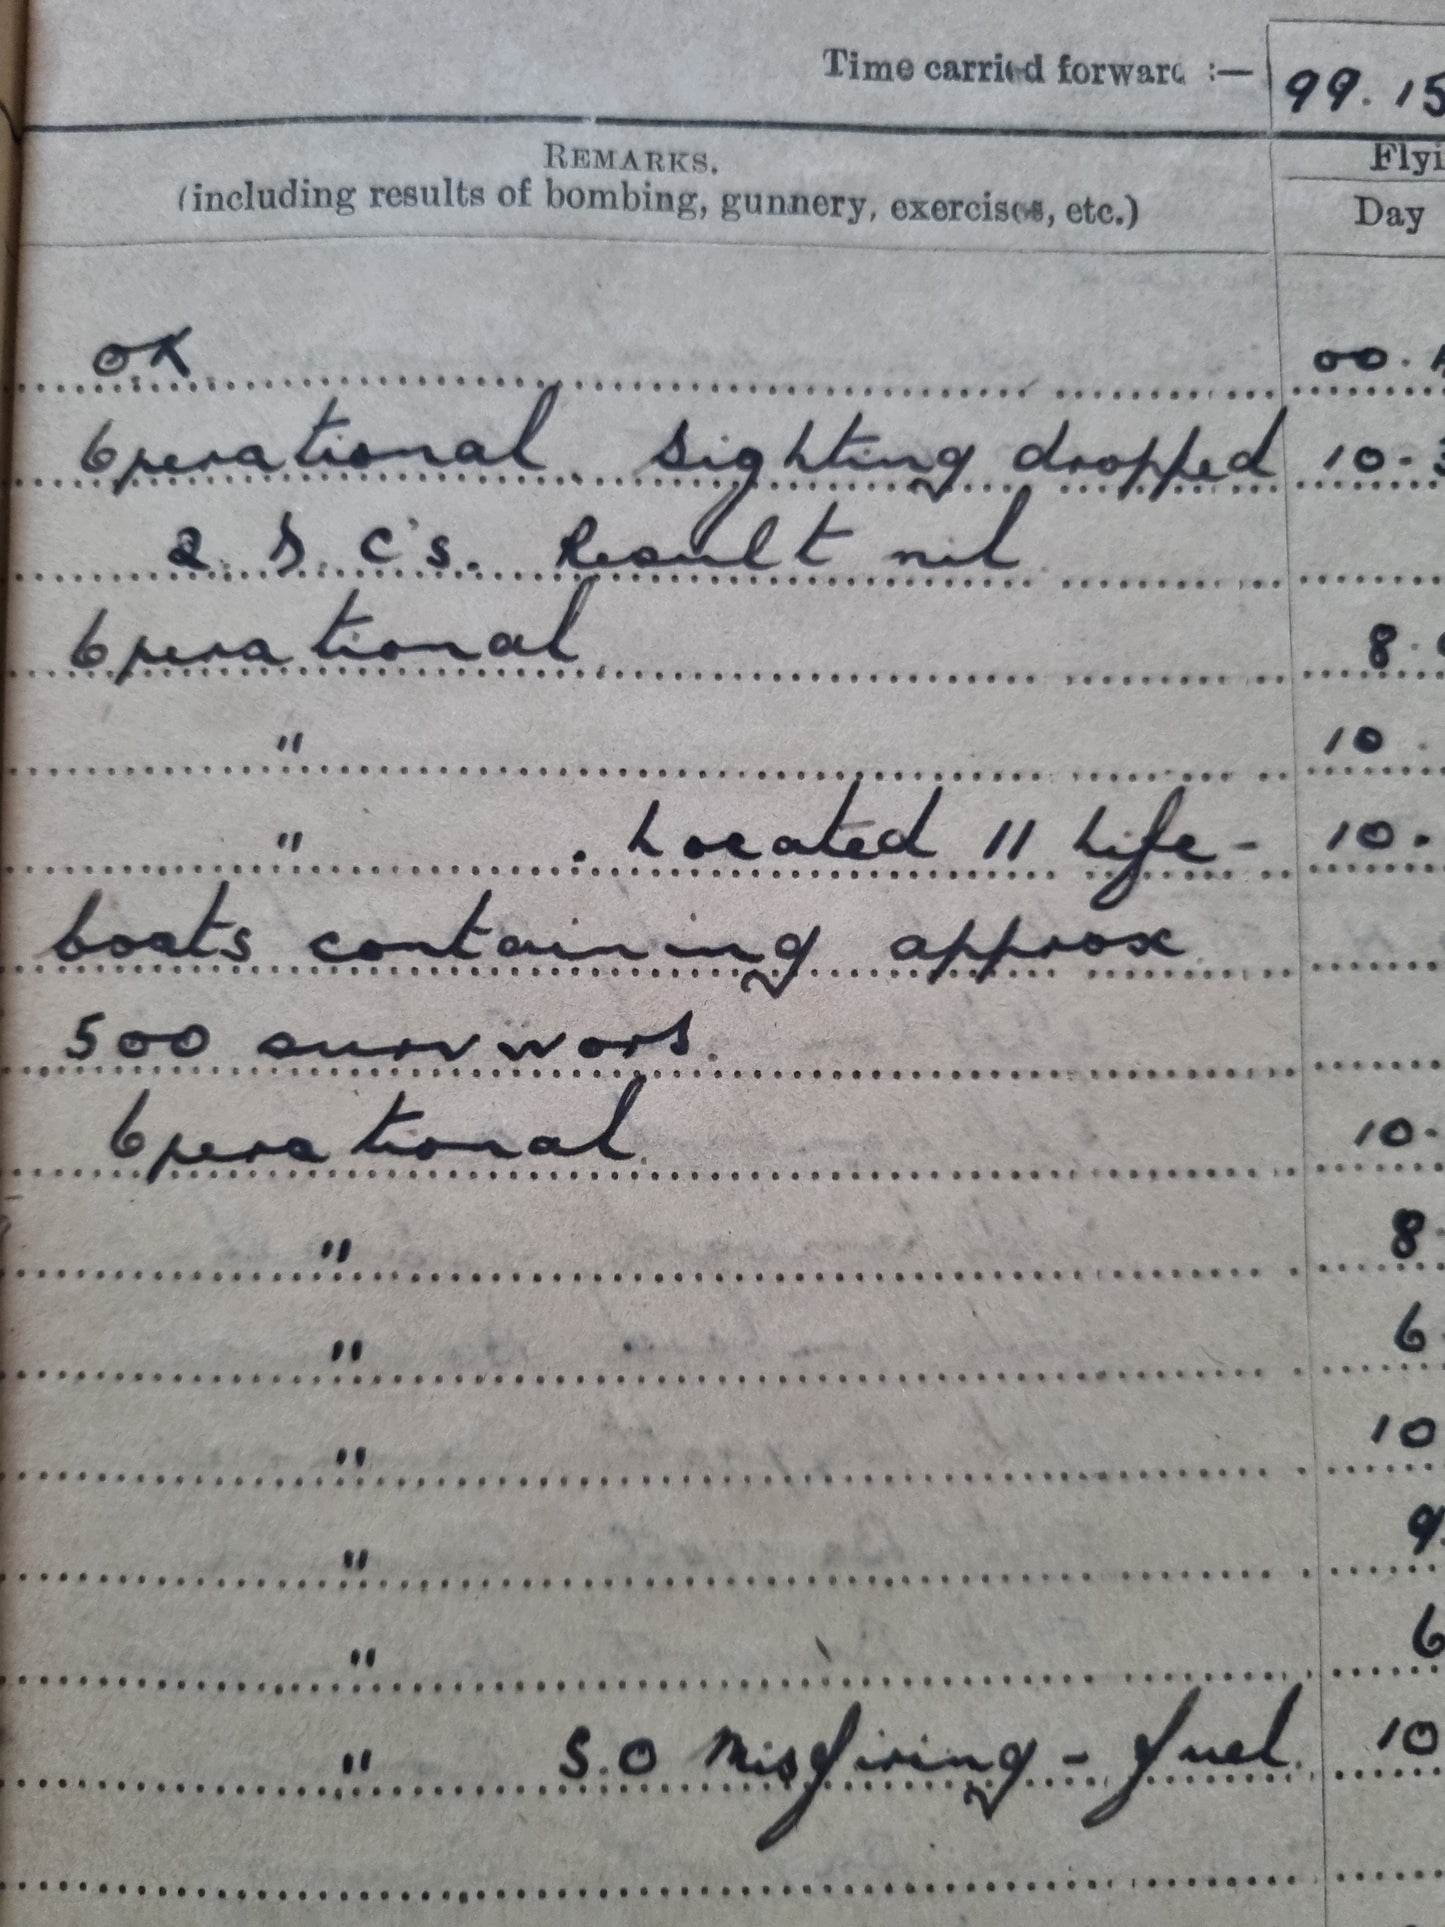 Time carried forward :— 99.15
REMARKS. Flyi
(including results of bombing, gunnery, exercises, etc.) Day
OK 00.
Operational. Sighting dropped 10-3
2. D. C's. Result nil
Operational. 8.
" 10.
" . Located 11 Life- 10.
boats containing approx
500 survivors.
Operational. 10-
" 8-
" 6
" 10
" 9.
" 6
" S.O Misfiring - fuel. 10